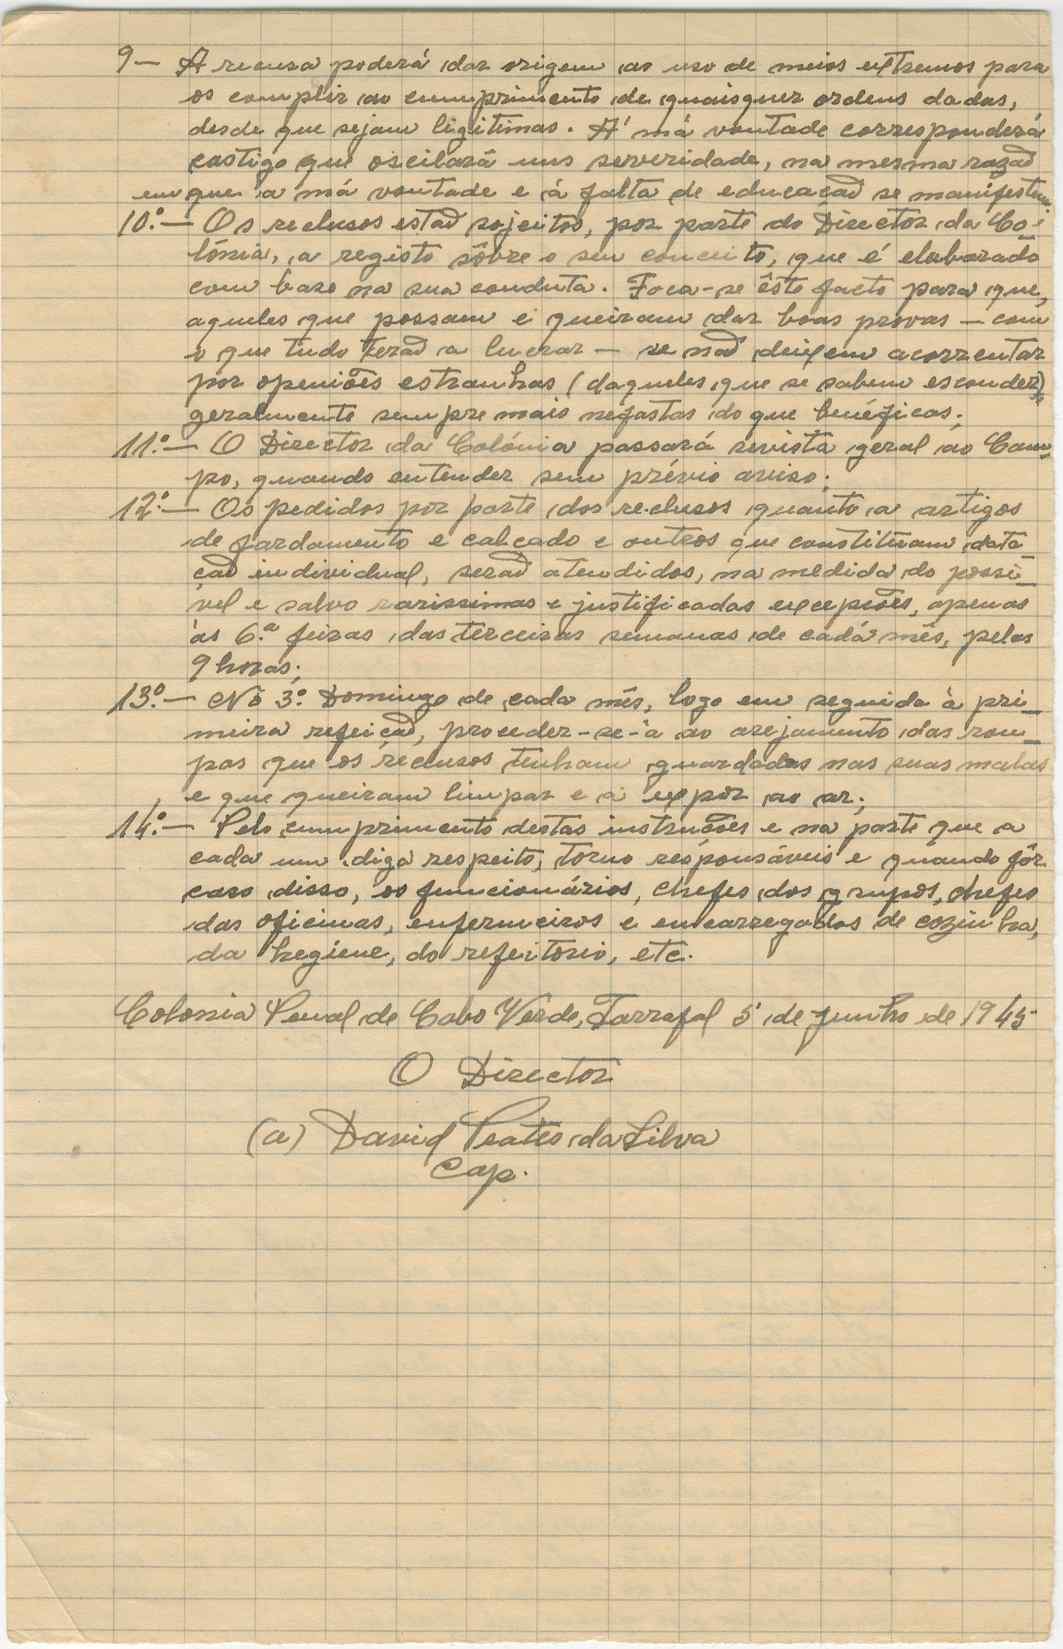 9— A recusa poderá dar origem ao uso de meios extremos para
os complir ao cumprimento de quaisquer ordens dadas,
desde que sejam ligitimas. Á má vontade corresponderá
castigo que oscilará uns serveridade, na mesma razaõ
em que a má vontade e á falta de educaçaõ se manifestem
10.º— Os reclusos estaõ sojeitos, por parte do Director da Co-
lónia, a registo sôbre o seu conceito, que é elaborado
com base na sua conduta. Foca-se êste facto para que,
aqueles que possam e queiram dar boas provas — com
o que tudo teraõ a lucrar — se naõ deixem acorrentar
por openiões estranhas (daqueles que se sabem esconder),
geralmente sempre mais nefastas do que benéficas.
11.º— O Director da Colónia passará revista geral ao Cam-
po, quando entender sem prévio aviso;
12.º— Os pedidos por parte dos reclusos quanto a artigos
de fardamento e calcado e outros que constituam dota-
çaõ individual, seraõ atendidos, na medida do possi-
vel e salvo rarissimas e justificadas excepções, apenas
ás 6.ª feiras das terceiras semanas de cadá mês, pelas
9 horas;
13.º— No 3.º Domingo de cada mês, logo em seguida à pri-
meira refeiçaõ, proceder-se-á ao arejamento das rou-
pas que os reclusos tenham guardadas nas suas malas
e que queiram limpar e a expor ao ar;
14.º— Pelo cumprimento destas instruções e na parte que a
cada um diga respeito, torno responsáveis e quando fôr
caso disso, os funcionários, chefes dos grupos, chefes
das oficinas, enfermeiros e encarregados de cozinha,
da hegiene, do refeitorio, etc.
Colonia Penal de Cabo Verde, Tarrafal 5 de Junho de 1945
O Director
(a) David Prates da Silva
Cap.